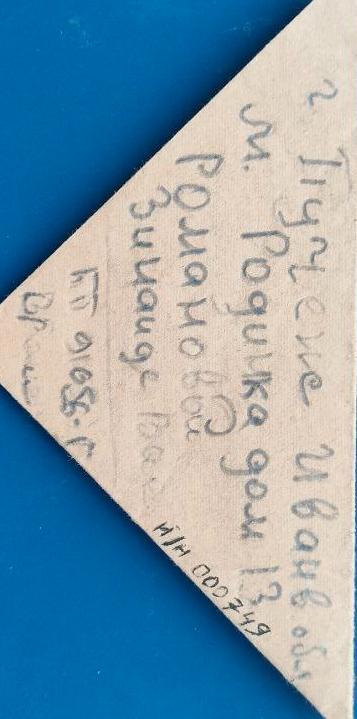 г. Пучеж Иванв обл
м. Родинка дом 13
Романовой
Зинаиде Вас
ПП 01058-Г
Н/Н 000749